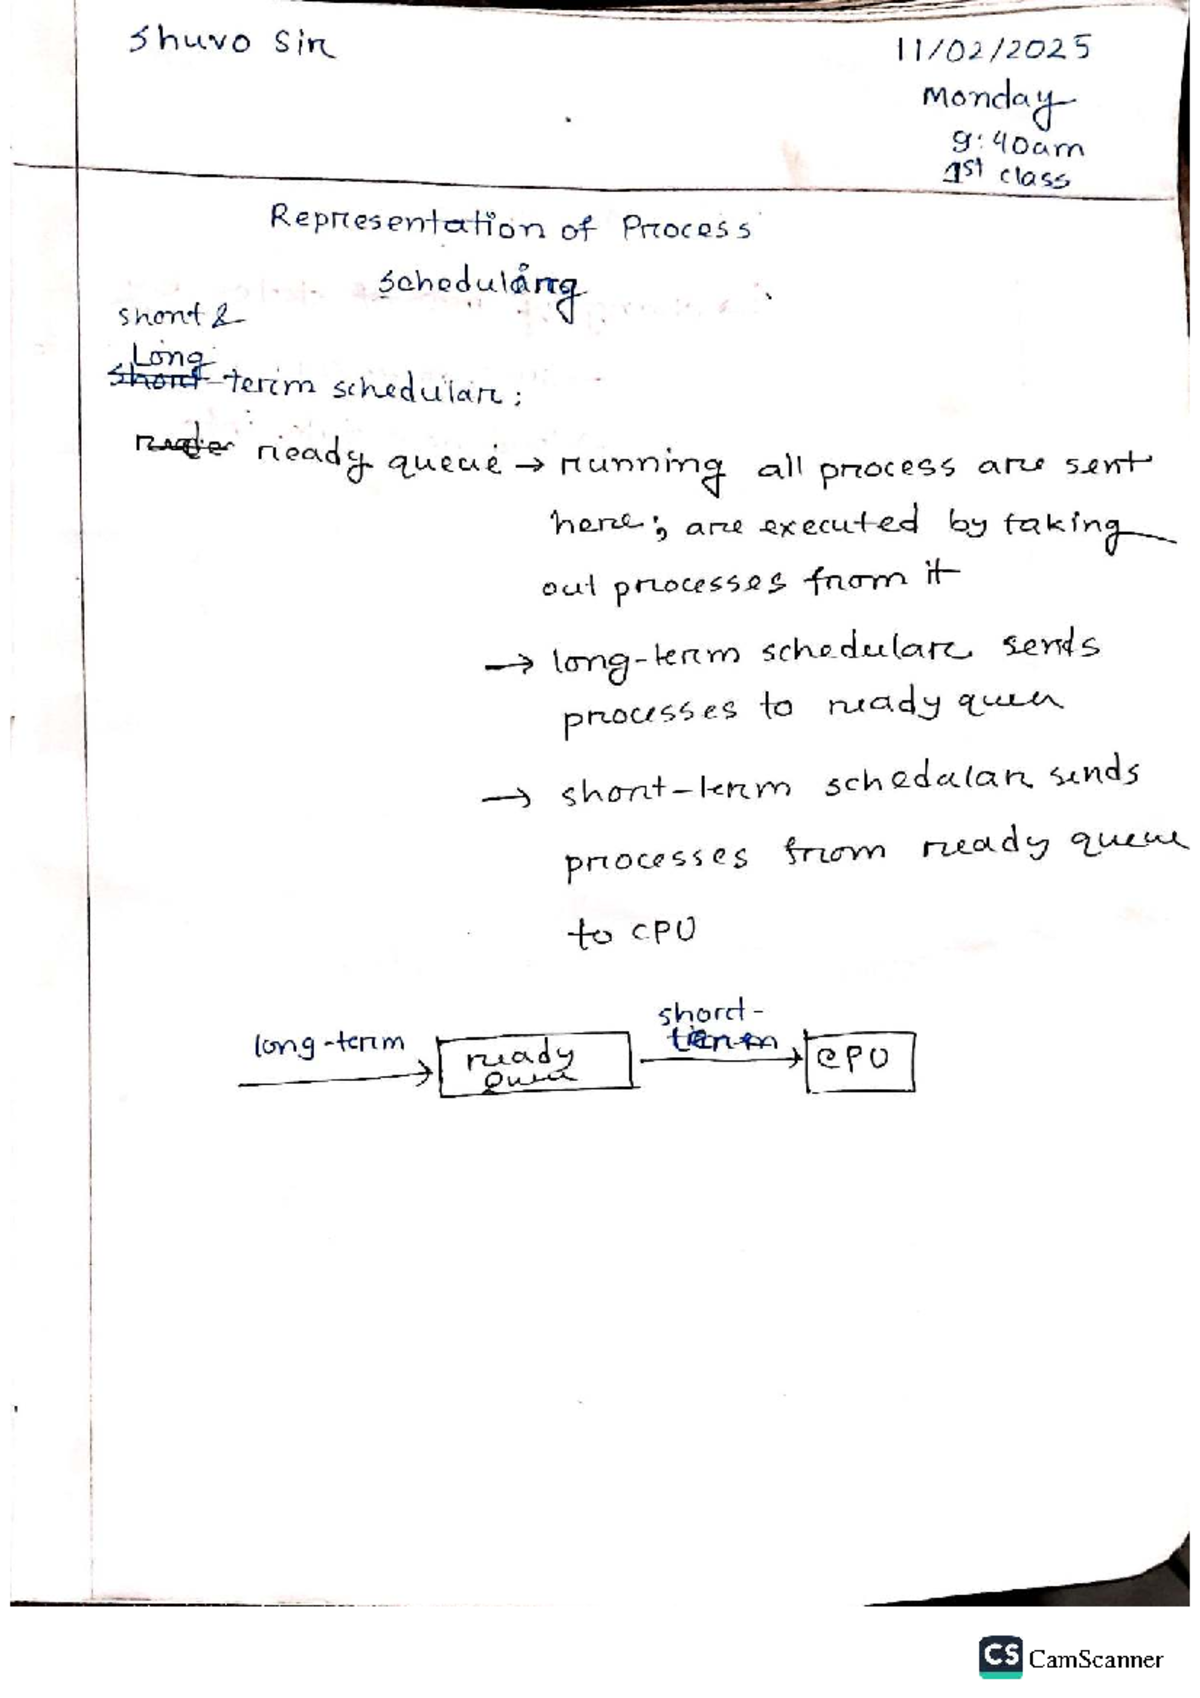 Shuvo Sir
11/02/2025
Monday
9:40am
1st class
Representation of Process
scheduling
short &
Long
short-term schedular;
ready queue → running all process are sent
here; are executed by taking
out processes from it
→ long-term schedular sends
processes to ready queu
→ short-term schedular sends
processes from ready queue
to CPU
long-term
ready
queue
short-
term
CPU
CS CamScanner